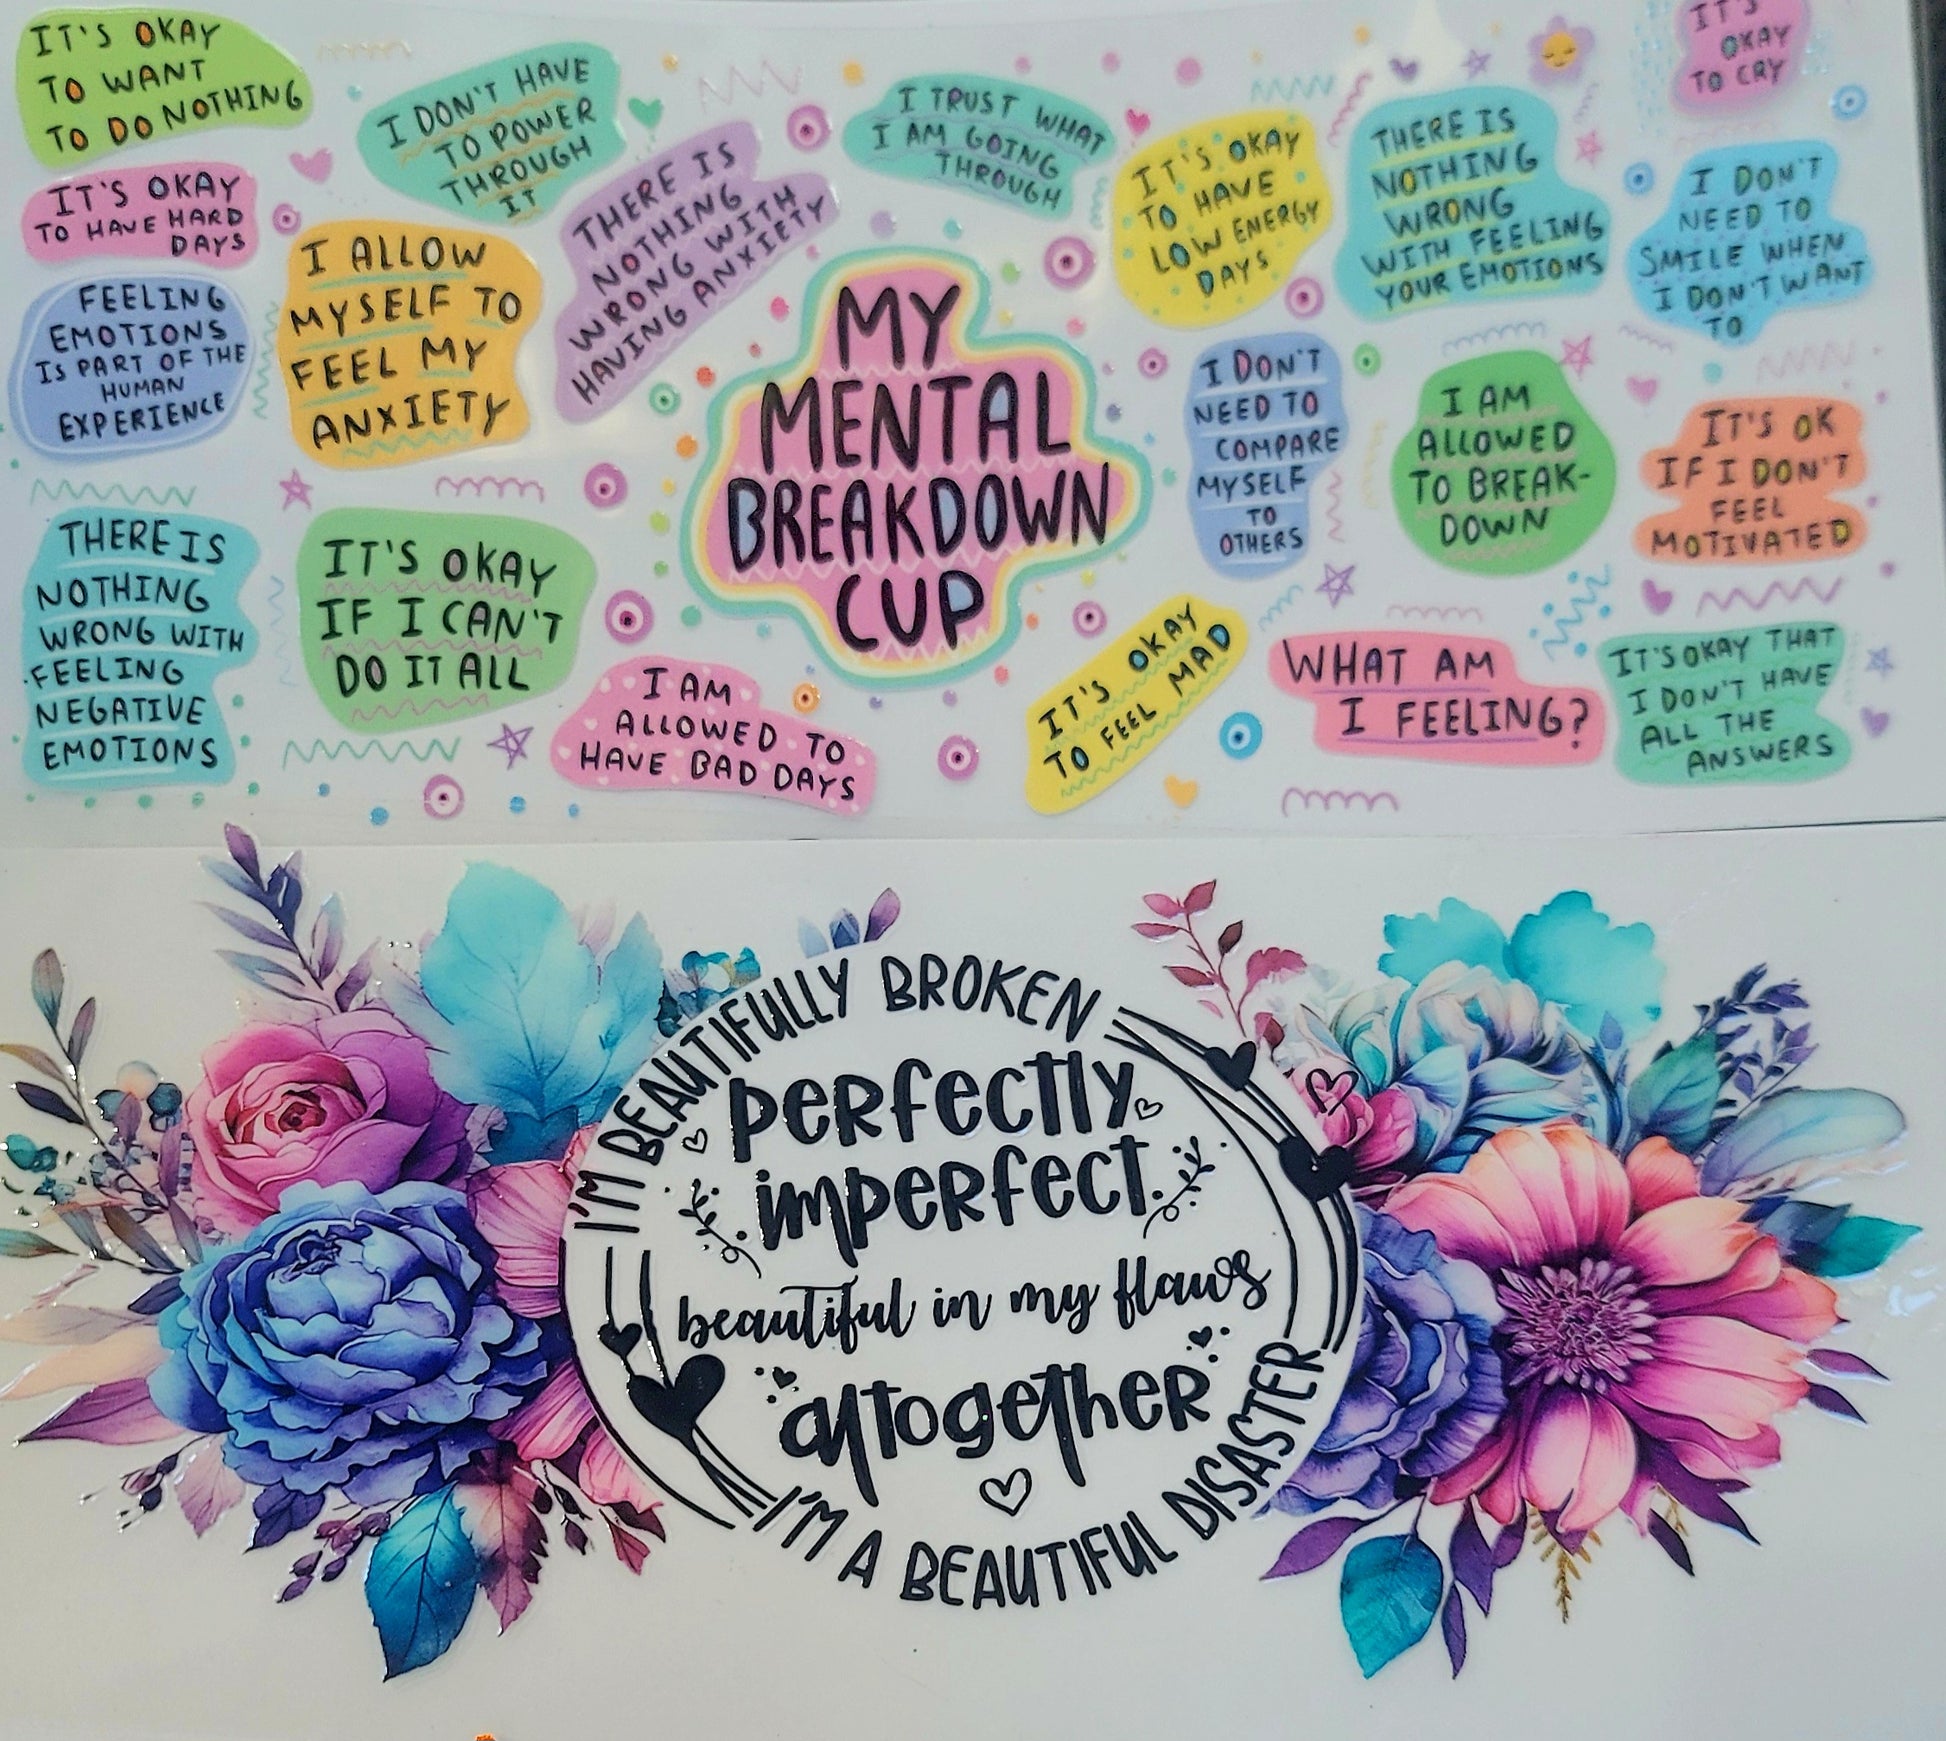 IT'S OKAY
TO WANT
TO DO NOTHING
I DON'T HAVE
TO POWER
THROUGH
IT
I TRUST WHAT
I AM GOING
THROUGH
IT'S
OKAY
TO CRY
IT'S OKAY
TO HAVE HARD
DAYS
THERE IS
NOTHING
WRONG WITH
HAVING ANXIETY
IT'S OKAY
TO HAVE
LOW ENERGY
DAYS
THERE IS
NOTHING
WRONG
WITH FEELING
YOUR EMOTIONS
I DON'T
NEED TO
SMILE WHEN
I DON'T WANT
TO
FEELING
EMOTIONS
IS PART OF THE
HUMAN
EXPERIENCE
I ALLOW
MYSELF TO
FEEL MY
ANXIETY
MY
MENTAL
BREAKDOWN
CUP
I DON'T
NEED TO
COMPARE
MYSELF
TO
OTHERS
I AM
ALLOWED
TO BREAK-
DOWN
IT'S OK
IF I DON'T
FEEL
MOTIVATED
THERE IS
NOTHING
WRONG WITH
FEELING
NEGATIVE
EMOTIONS
IT'S OKAY
IF I CAN'T
DO IT ALL
I AM
ALLOWED TO
HAVE BAD DAYS
IT'S OKAY
TO FEEL MAD
WHAT AM
I FEELING?
IT'S OKAY THAT
I DON'T HAVE
ALL THE
ANSWERS
I'M BEAUTIFULLY BROKEN
perfectly
imperfect
beautiful in my flaws
altogether
I'M A BEAUTIFUL DISASTER